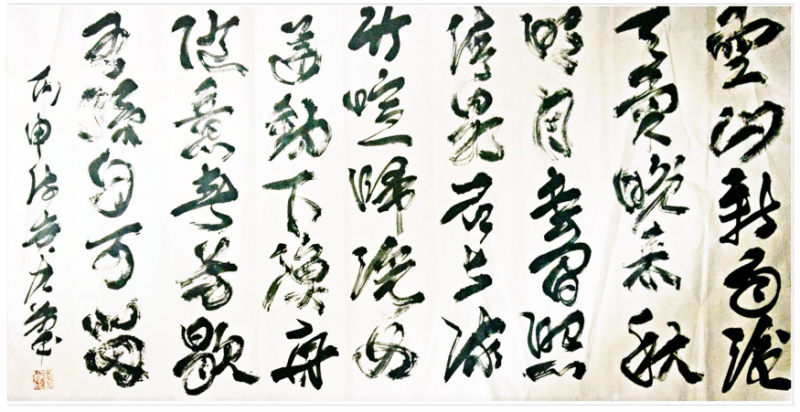 空山新雨後
天氣晚來秋
明月松間照
清泉石上流
竹喧歸浣女
蓮動下漁舟
隨意春芳歇
王孫自可留
丙申